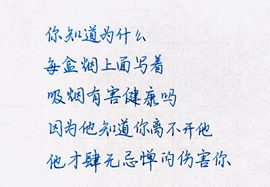 你知道为什么
每盒烟上面写着
吸烟有害健康吗
因为他知道你离不开他
他才肆无忌惮的伤害你